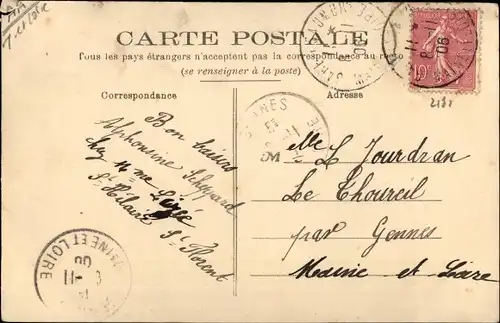 CARTE POSTALE
Tous les pays étrangers n'acceptent pas la correspondance au recto
(se renseigner à la poste)
Correspondance
Adresse
Bon baisers
Alphonsine
chez Mme
St Hilaire St Florent
Mlle L Jourdran
Le Thoureil
par Gennes
Maine et Loire
10
06
INE ET LOIRE
06